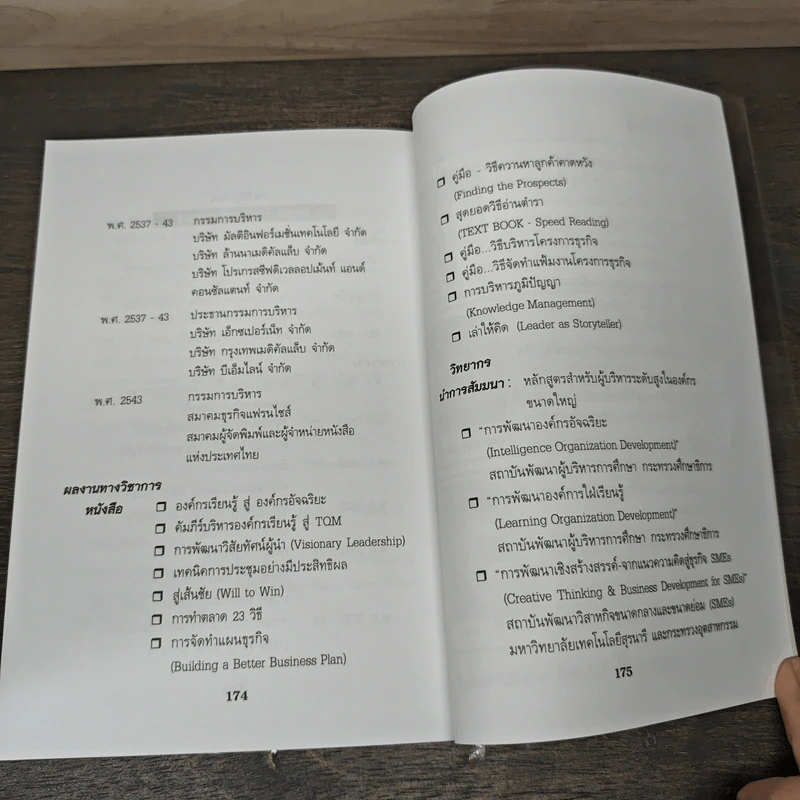 พ.ศ. 2537 - 43 กรรมการบริหาร
บริษัท มัลติอินฟอร์เมชั่นเทคโนโลยี จำกัด
บริษัท ล้านนาเมดิคัลแล็บ จำกัด
บริษัท โปรเกรสซีฟดิเวลลอปเม้นท์ แอนด์
คอนซัลแตนท์ จำกัด
พ.ศ. 2537 - 43 ประธานกรรมการบริหาร
บริษัท เอ็กซเปอร์เน็ท จำกัด
บริษัท กรุงเทพเมดิคัลแล็บ จำกัด
บริษัท บีเอ็มไลน์ จำกัด
พ.ศ. 2543 กรรมการบริหาร
สมาคมธุรกิจแฟรนไชส์
สมาคมผู้จัดพิมพ์และผู้จำหน่ายหนังสือ
แห่งประเทศไทย
ผลงานทางวิชาการ
หนังสือ ❒ องค์กรเรียนรู้ สู่ องค์กรอัจฉริยะ
❒ คัมภีร์บริหารองค์กรเรียนรู้ สู่ TQM
❒ การพัฒนาวิสัยทัศน์ผู้นำ (Visionary Leadership)
❒ เทคนิคการประชุมอย่างมีประสิทธิผล
❒ สู่เส้นชัย (Will to Win)
❒ การทำตลาด 23 วิธี
❒ การจัดทำแผนธุรกิจ
(Building a Better Business Plan)
174
❒ คู่มือ - วิธีควานหาลูกค้าคาดหวัง
(Finding the Prospects)
❒ สุดยอดวิธีอ่านตำรา
(TEXT BOOK - Speed Reading)
❒ คู่มือ...วิธีบริหารโครงการธุรกิจ
❒ คู่มือ...วิธีจัดทำแฟ้มงานโครงการธุรกิจ
❒ การบริหารภูมิปัญญา
(Knowledge Management)
❒ เล่าให้คิด (Leader as Storyteller)
วิทยากร
นำการสัมมนา : หลักสูตรสำหรับผู้บริหารระดับสูงในองค์กร
ขนาดใหญ่
❒ "การพัฒนาองค์กรอัจฉริยะ
(Intelligence Organization Development)"
สถาบันพัฒนาผู้บริหารการศึกษา กระทรวงศึกษาธิการ
❒ "การพัฒนาองค์การใฝ่เรียนรู้
(Learning Organization Development)"
สถาบันพัฒนาผู้บริหารการศึกษา กระทรวงศึกษาธิการ
❒ "การพัฒนาเชิงสร้างสรรค์-จากแนวความคิดสู่ธุรกิจ SMEs
(Creative Thinking & Business Development for SMEs)"
สถาบันพัฒนาวิสาหกิจขนาดกลางและขนาดย่อม (SMEs)
มหาวิทยาลัยเทคโนโลยีสุรนารี และกระทรวงอุตสาหกรรม
175